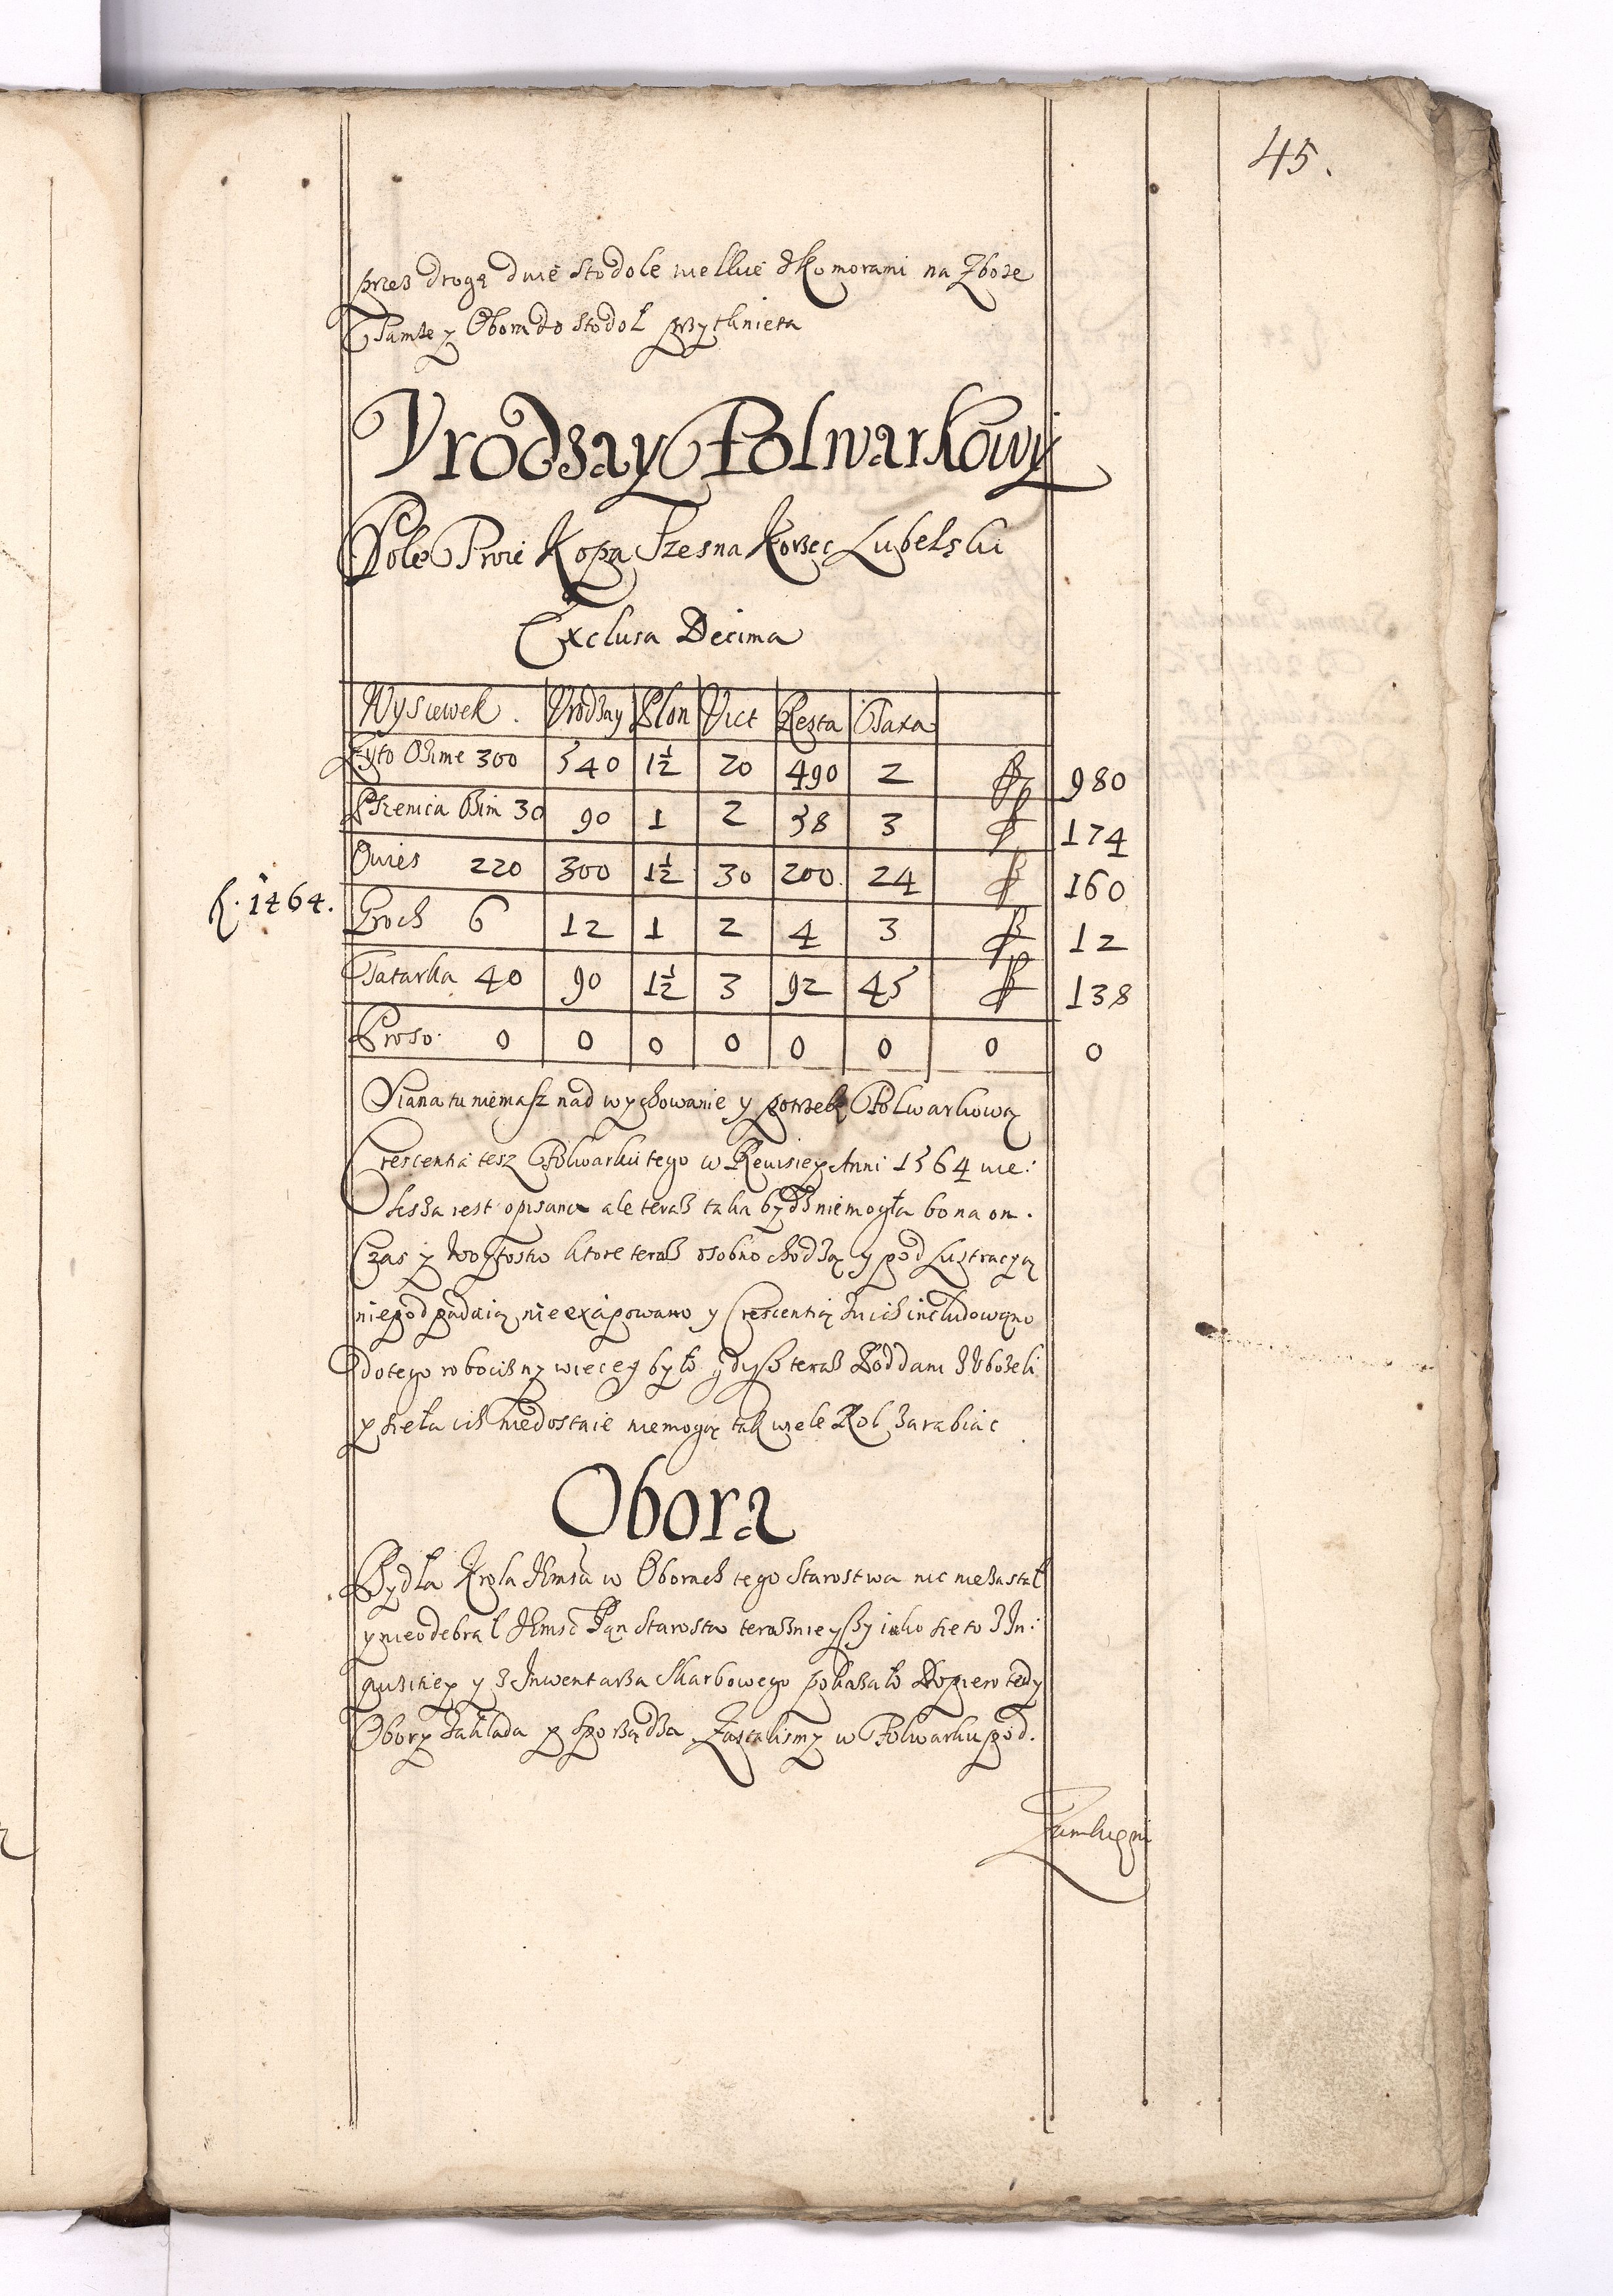 45.
przez drogę dwie stodole wielkie z komorami na zboże
Tamże y Obora do stodoł przytknięta
Vrodzay Folwarkowy
Pole Troie Kopa Trzesna Korzec Lubelski
Exclusa Decima
Wysiewek. Vrodzay Plon Vict Resta Taxa
Zyto Ozime 300 540 1½ 20 490 2 fl 980
Pszenica Ozim 30 90 1 2 58 3 fl 174
Owies 220 300 1½ 30 200. 24 fl 160
f. 1464.
Groch 6 12 1 2 4 3 fl 12
Tatarka 40 90 1½ 3 92 45 fl 138
Proso. 0 0 0 0 0 0 0 0
Siana tu niemasz nad wychowanie y potrzebę Folwarkową
Crescentia tesz Folwarku tego w Rewisiey Anni 1564 wie:
ksza iest opisana ale teraz taka bydz niemogła bo na on.
Czas y Woytostwo ktore teraz osobno chodzą y pod Lustracyą
niepodpadaią nie excipowano y Crescentią z nich includowano
do tego robocizny więcey było gdysz teraz Poddani zubożeli
y sieła ich niedostaie niemogą tak wiele Rol zarabiac
Obora
Bydła Krola JEmsci w Oborach tego Starostwa nic niezastał
y nieodebrał JEmsc Pan Starosta teraznieyszy iako sie to z In:
quisitiey y z Inwentarza Skarbowego pokazało Dopiero tedy
Obory zakłada y sporządza. Zastalismy w Folwarku pod.
Zamkięm